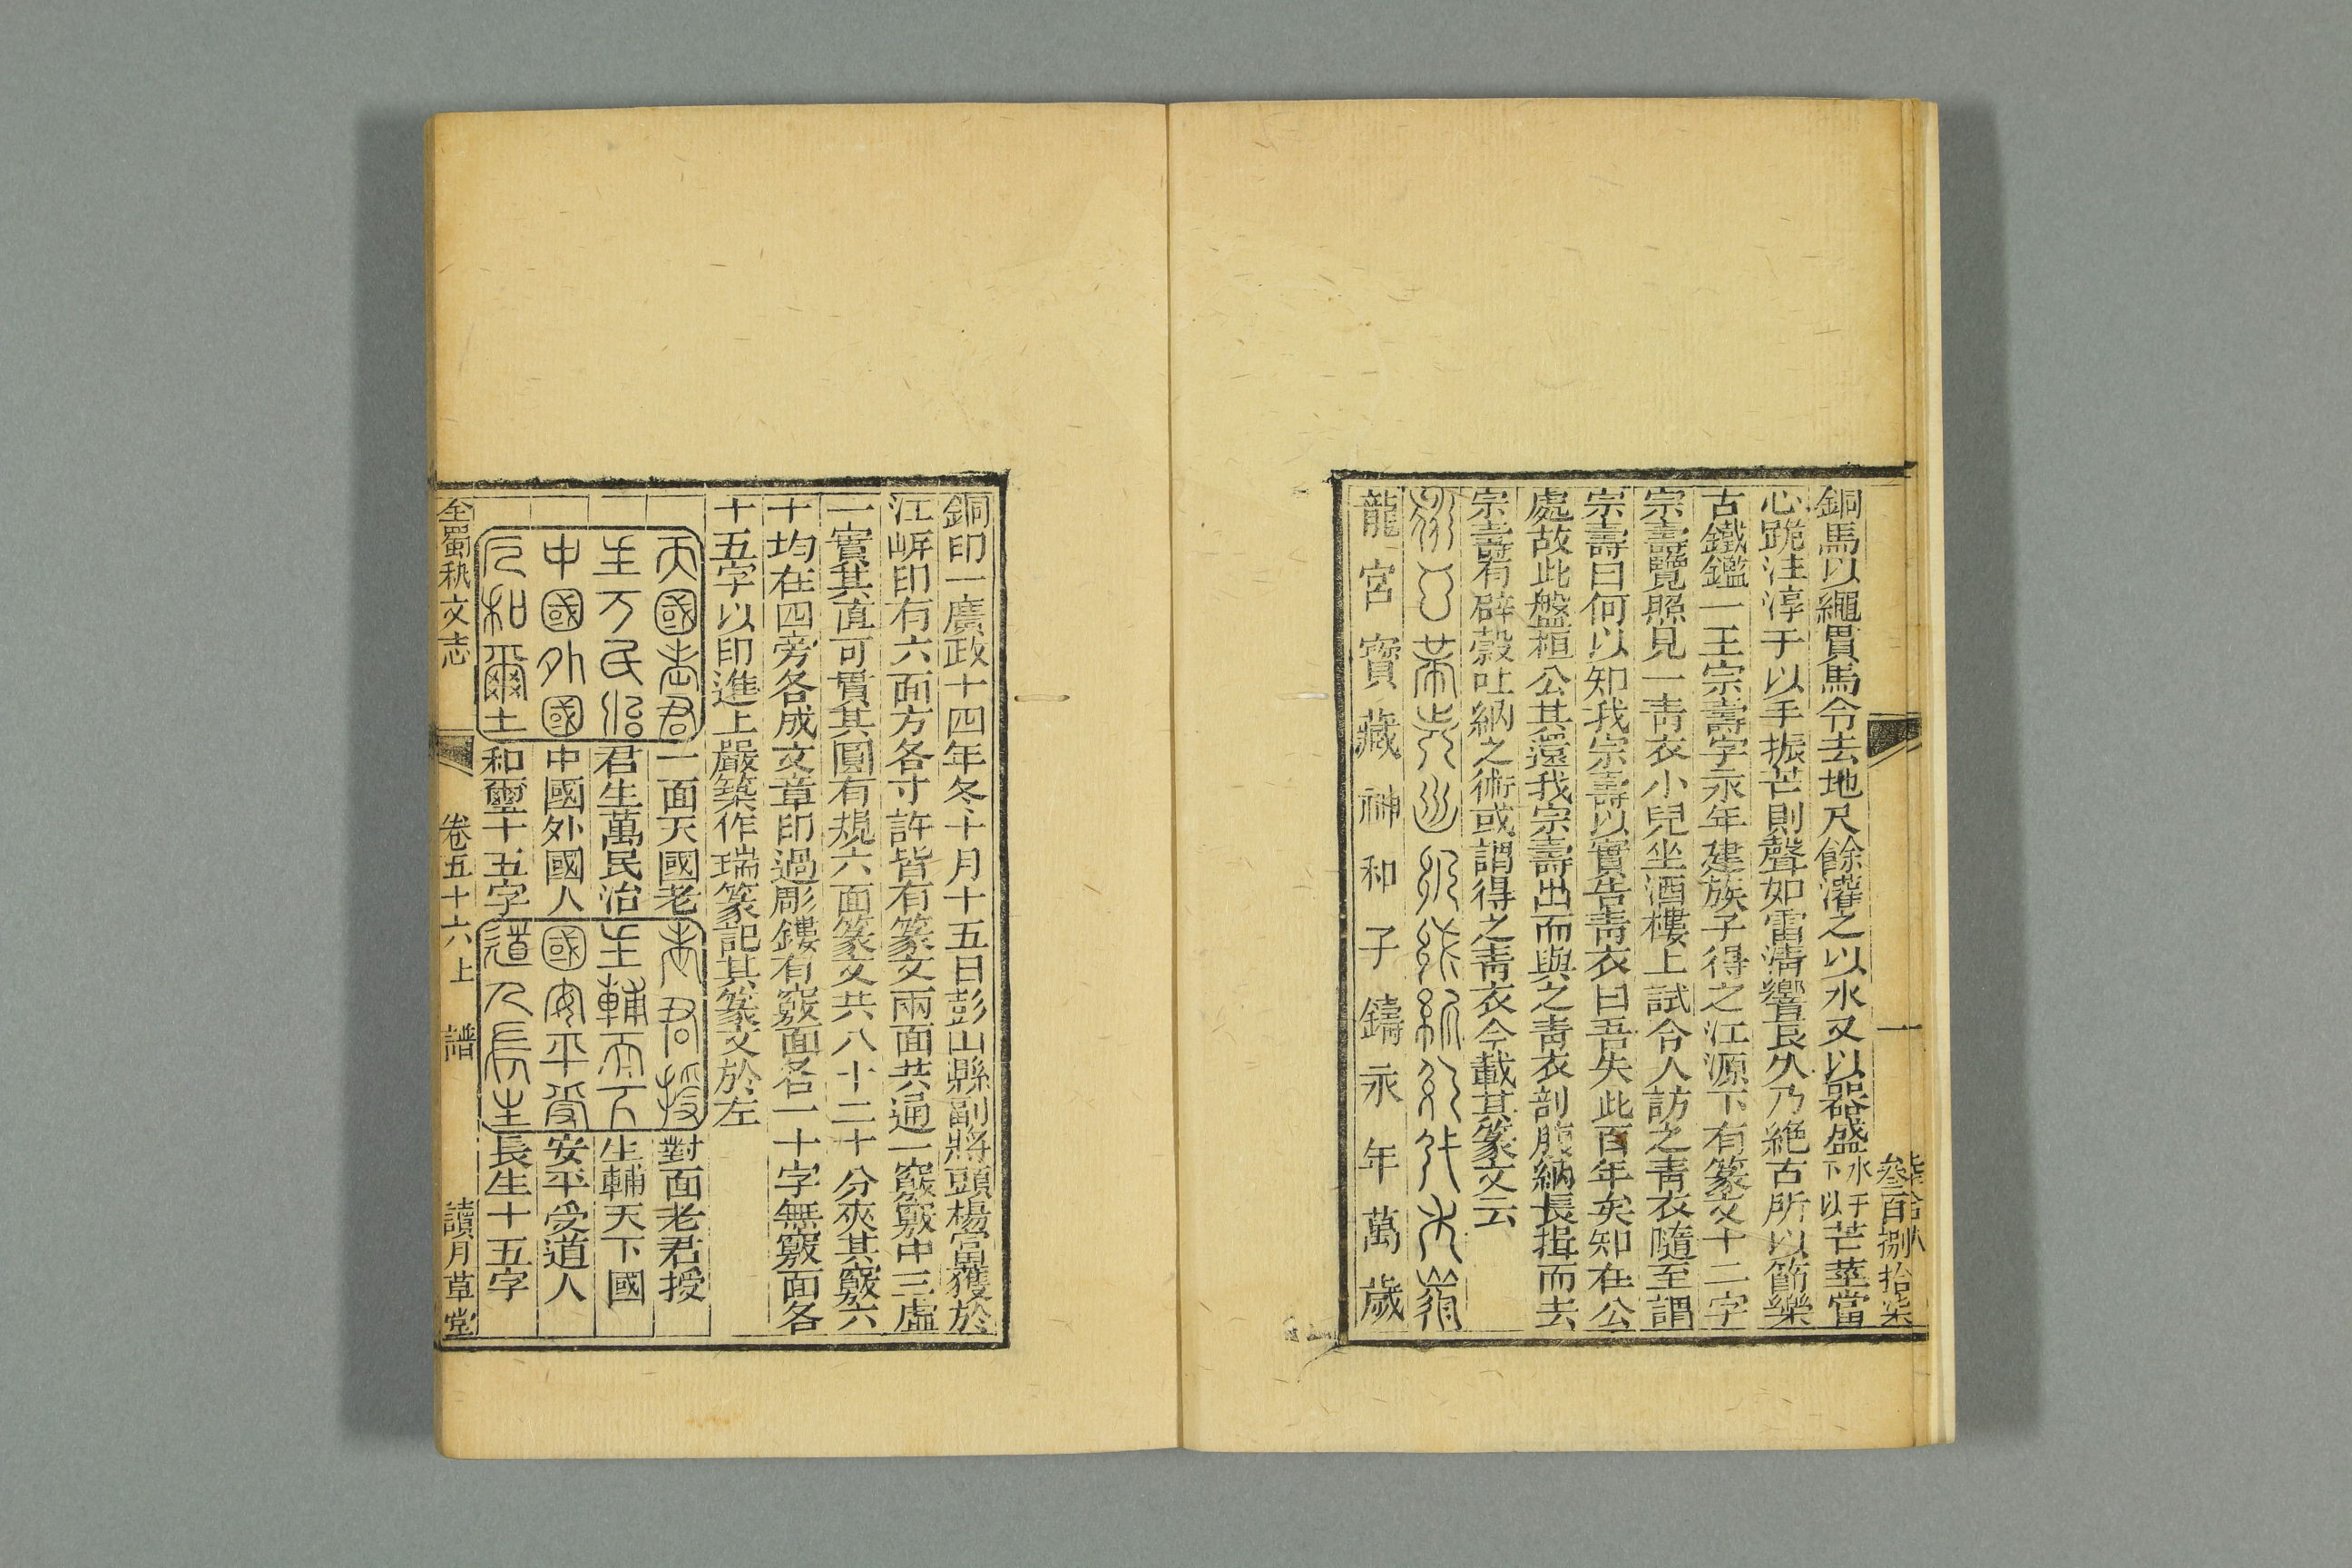 叁百捌拾柒
一
銅馬以繩貫馬令去地尺餘灌之以水又以器盛水于下以芒莖當
心跪注淳于以手振芒則聲如雷清響良久乃絶古所以節樂
古鐵鑑一王宗壽字永年建族子得之江源下有篆文十二字
宗壽覽照見一青衣小兒坐酒樓上試令人訪之青衣隨至謂
宗壽曰何以知我宗壽以實告青衣曰吾失此百年矣知在公
處故此盤桓公其還我宗壽出而與之青衣剖腹納長揖而去
宗壽有辟穀吐納之術或謂得之青衣今載其篆文云
龍宮寶藏神和子鑄永年萬歲
銅印一廣政十四年冬十月十五日彭山縣副將頭楊富獲於
江岸印有六面方各寸許皆有篆文兩面共通一竅竅中三虛
一實其直可貫其圓有規六面篆文共八十二十分夾其竅六
十均在四旁各成文章印過彫鏤有竅面各一十字無竅面各
十五字以印進上嚴築作瑞篆記其篆文於左
天國老君
生万民治
中國外國
人和爾土
一面天國老
君生萬民治
中國外國人
和璽十五字
老君授
生輔天下
國安平受
道人長生
對面老君授
生輔天下國
安平受道人
長生十五字
全蜀秇文志
卷五十六上
譜
讀月草堂